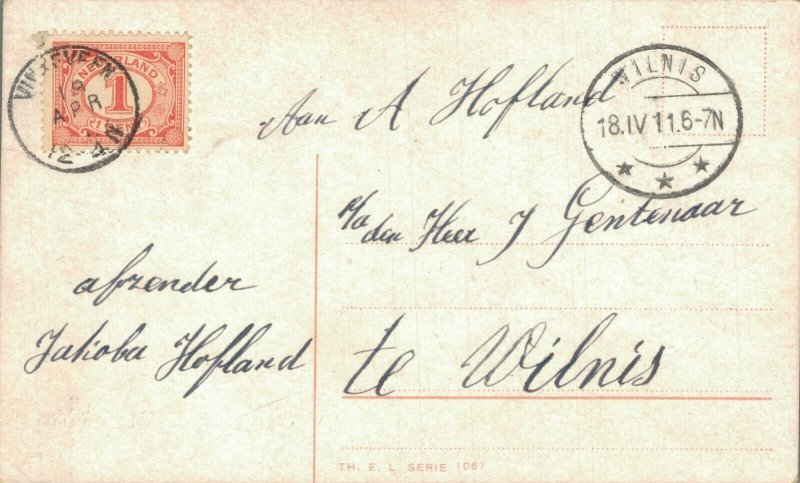 VINKEVEEN
18
APR
12-4N
NEDERLAND
1
CENT
WILNIS
18.IV 11.6-7N
Aan A Hofland
p/a
den Heer J Gentenaar
te Wilnis
afzender
Jakoba Hofland
TH. E. L. SERIE 1067